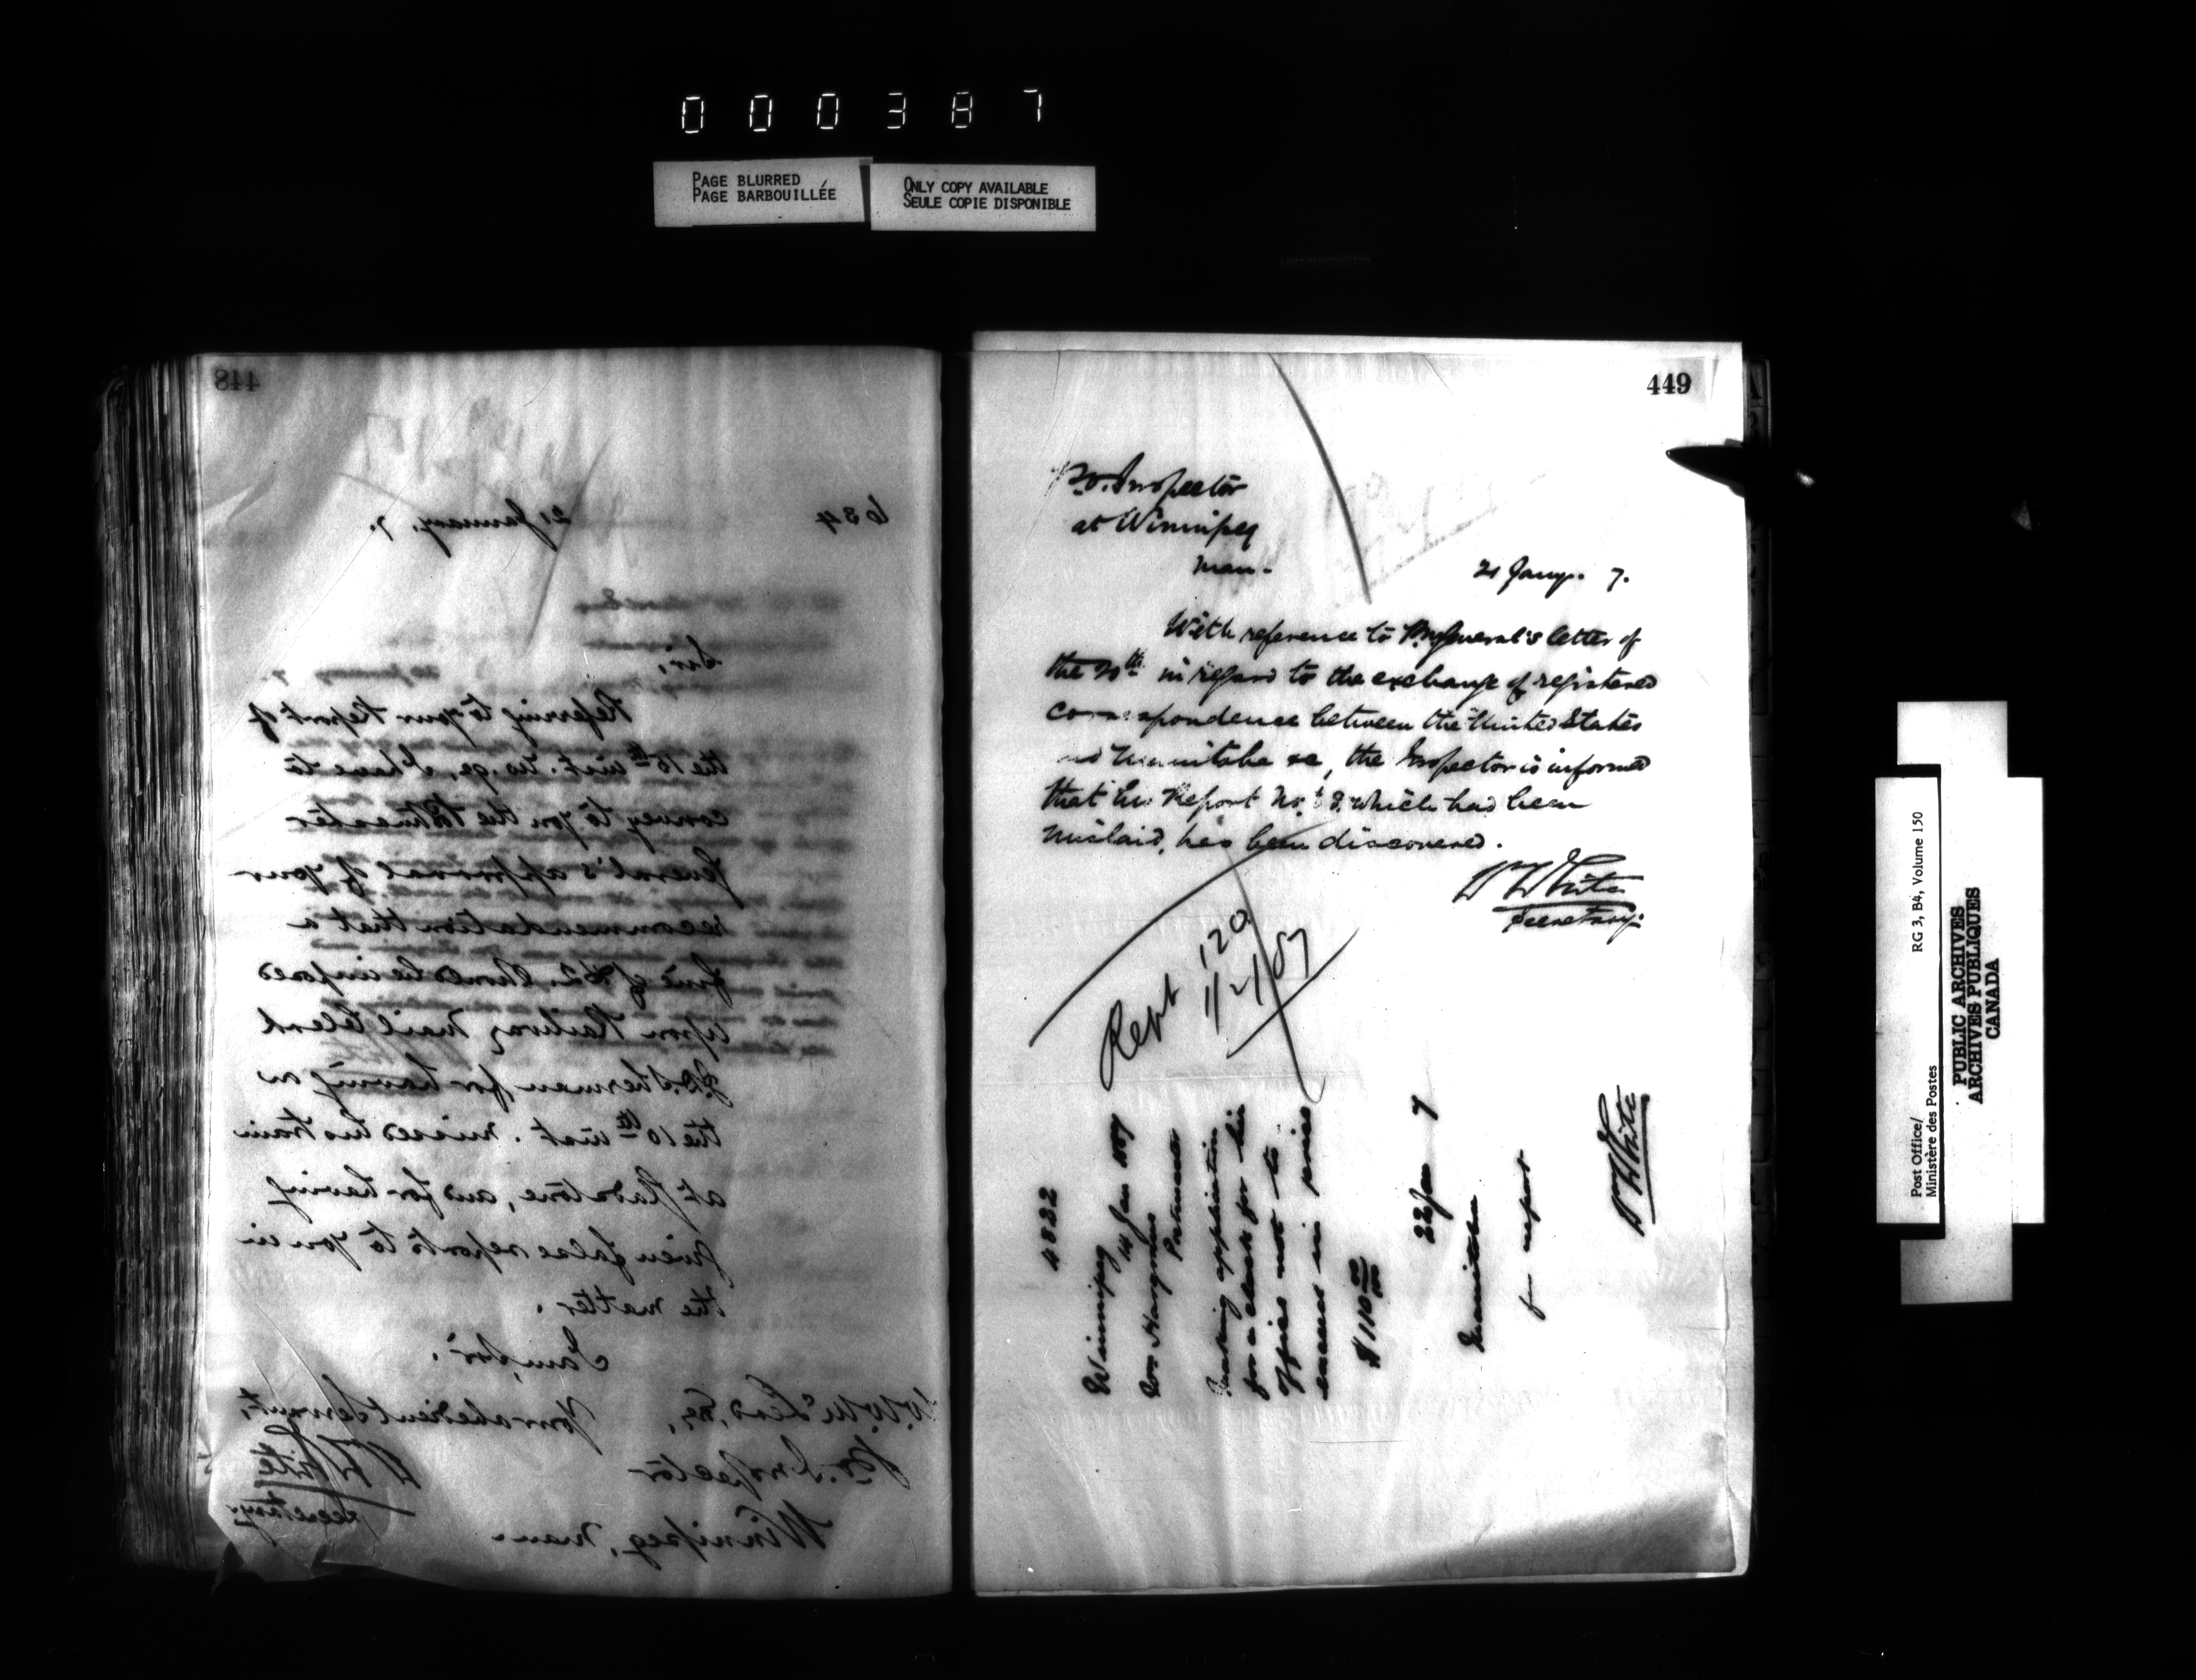 000387
PAGE BLURRED
PAGE BARBOUILLÉE
ONLY COPY AVAILABLE
SEULE COPIE DISPONIBLE
448
634
21 January, 7.
Sir,
Referring to your Report of
the 15th inst. No. 90, I have to
convey to you the Postmaster
General's approval of your
recommendation that a
fine of $2. should be imposed
upon Railway Mail Clerk
J.D. Sherman for having on
the 10th inst. missed his train
at Gladstone, and for having
given false reports to you in
the matter.
I am, Sir,
Your obedient Servant,
W.W. McLeod, Esq,
P.O. Inspector
Winnipeg, Man
W White
Secretary.
449
P.O. Inspector
at Winnipeg
Man.
21 Jany. 7.
With reference to P.M. General's letter of
the 20th in regard to the exchange of registered
correspondence between the United States
and Manitoba &c, the Inspector is informed
that his Report No. which had been
mislaid, has been discovered.
W White
Secretary.
Rept 120
11/2/87
4832
Winnipeg
14 Jan 1887
Wm Hargrave
Postmaster
Making application
for a clerk for his
Office not to
exceed in
$1110 00/100
22 Jan 7
Manitoba
for report
W White
Post Office/
Ministère des Postes
RG 3, B4, Volume 150
PUBLIC ARCHIVES
ARCHIVES PUBLIQUES
CANADA